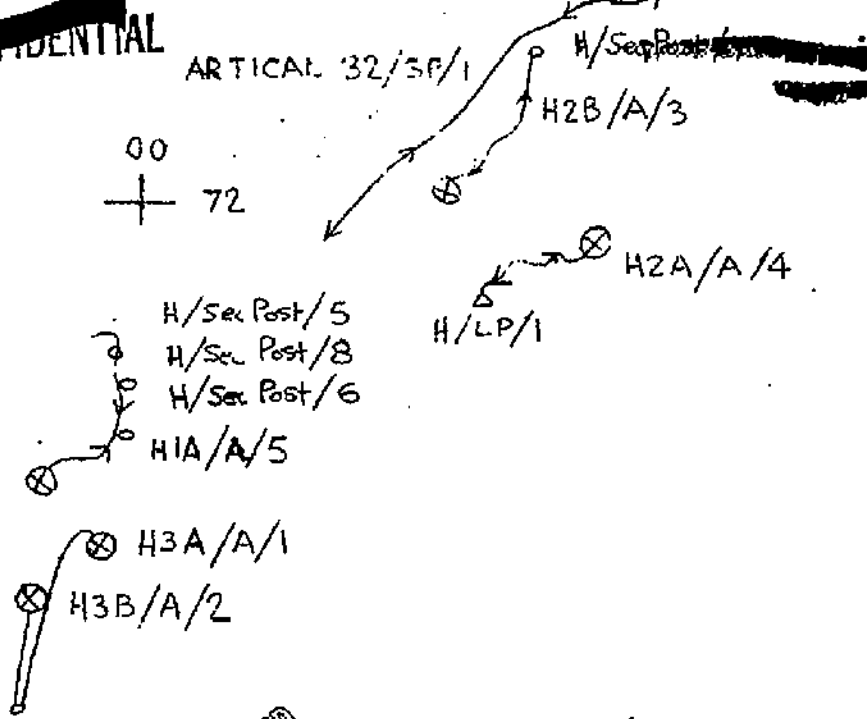 IDENTIAL
ARTICAL 32/3P/1
H/Sec Post/
H2B/A/3
00
72
H2A/A/4
H/LP/1
H/Sec Post/5
H/Sec Post/8
H/Sec Post/6
H1A/A/5
H3A/A/1
H3B/A/2